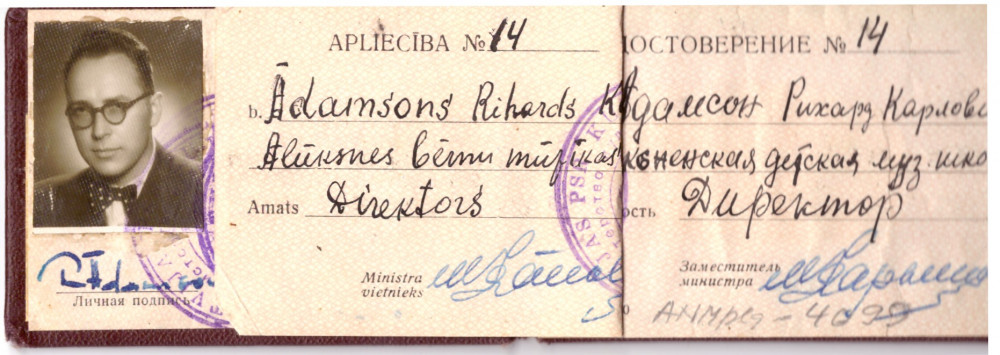 APLIECĪBA № 14
b. Ādamsons Rihards K
Alūksnes bērnu mūzikas
Amats Direktors
Ministra
vietnieks
Личная подпись
ДОСТОВЕРЕНИЕ № 14
Адамсон Рихард Карлови
ненская детская муз. шко
ость Директор
Заместитель
министра
АНМрег - 4099
JAS PSR K